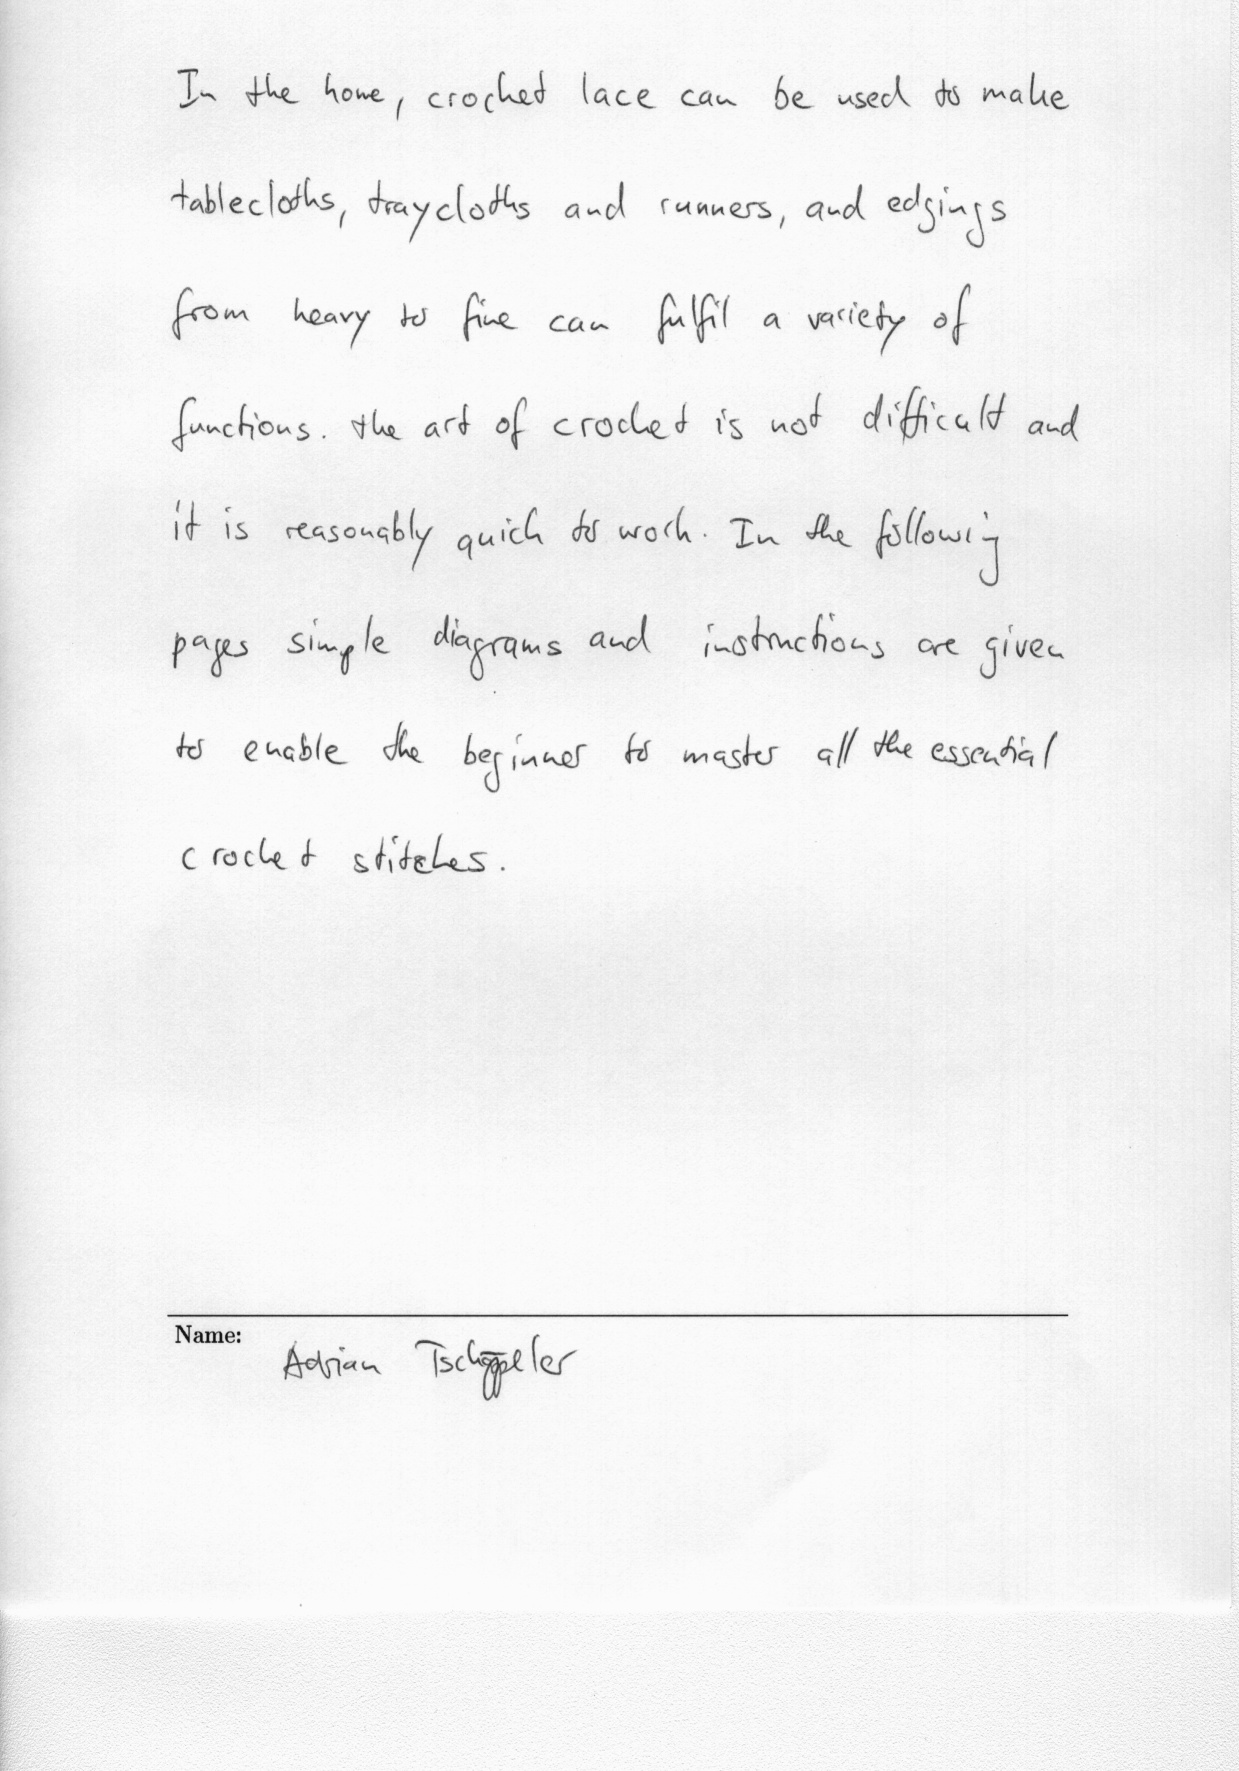 In the home, crochet lace can be used to make
tablecloths, traycloths and runners, and edgings
from heavy to fine can fulfil a variety of
functions. the art of crochet is not difficult and
it is reasonably quick to work. In the following
pages simple diagrams and instructions are given
to enable the beginner to master all the essential
crochet stitches.
Name:
Adrian